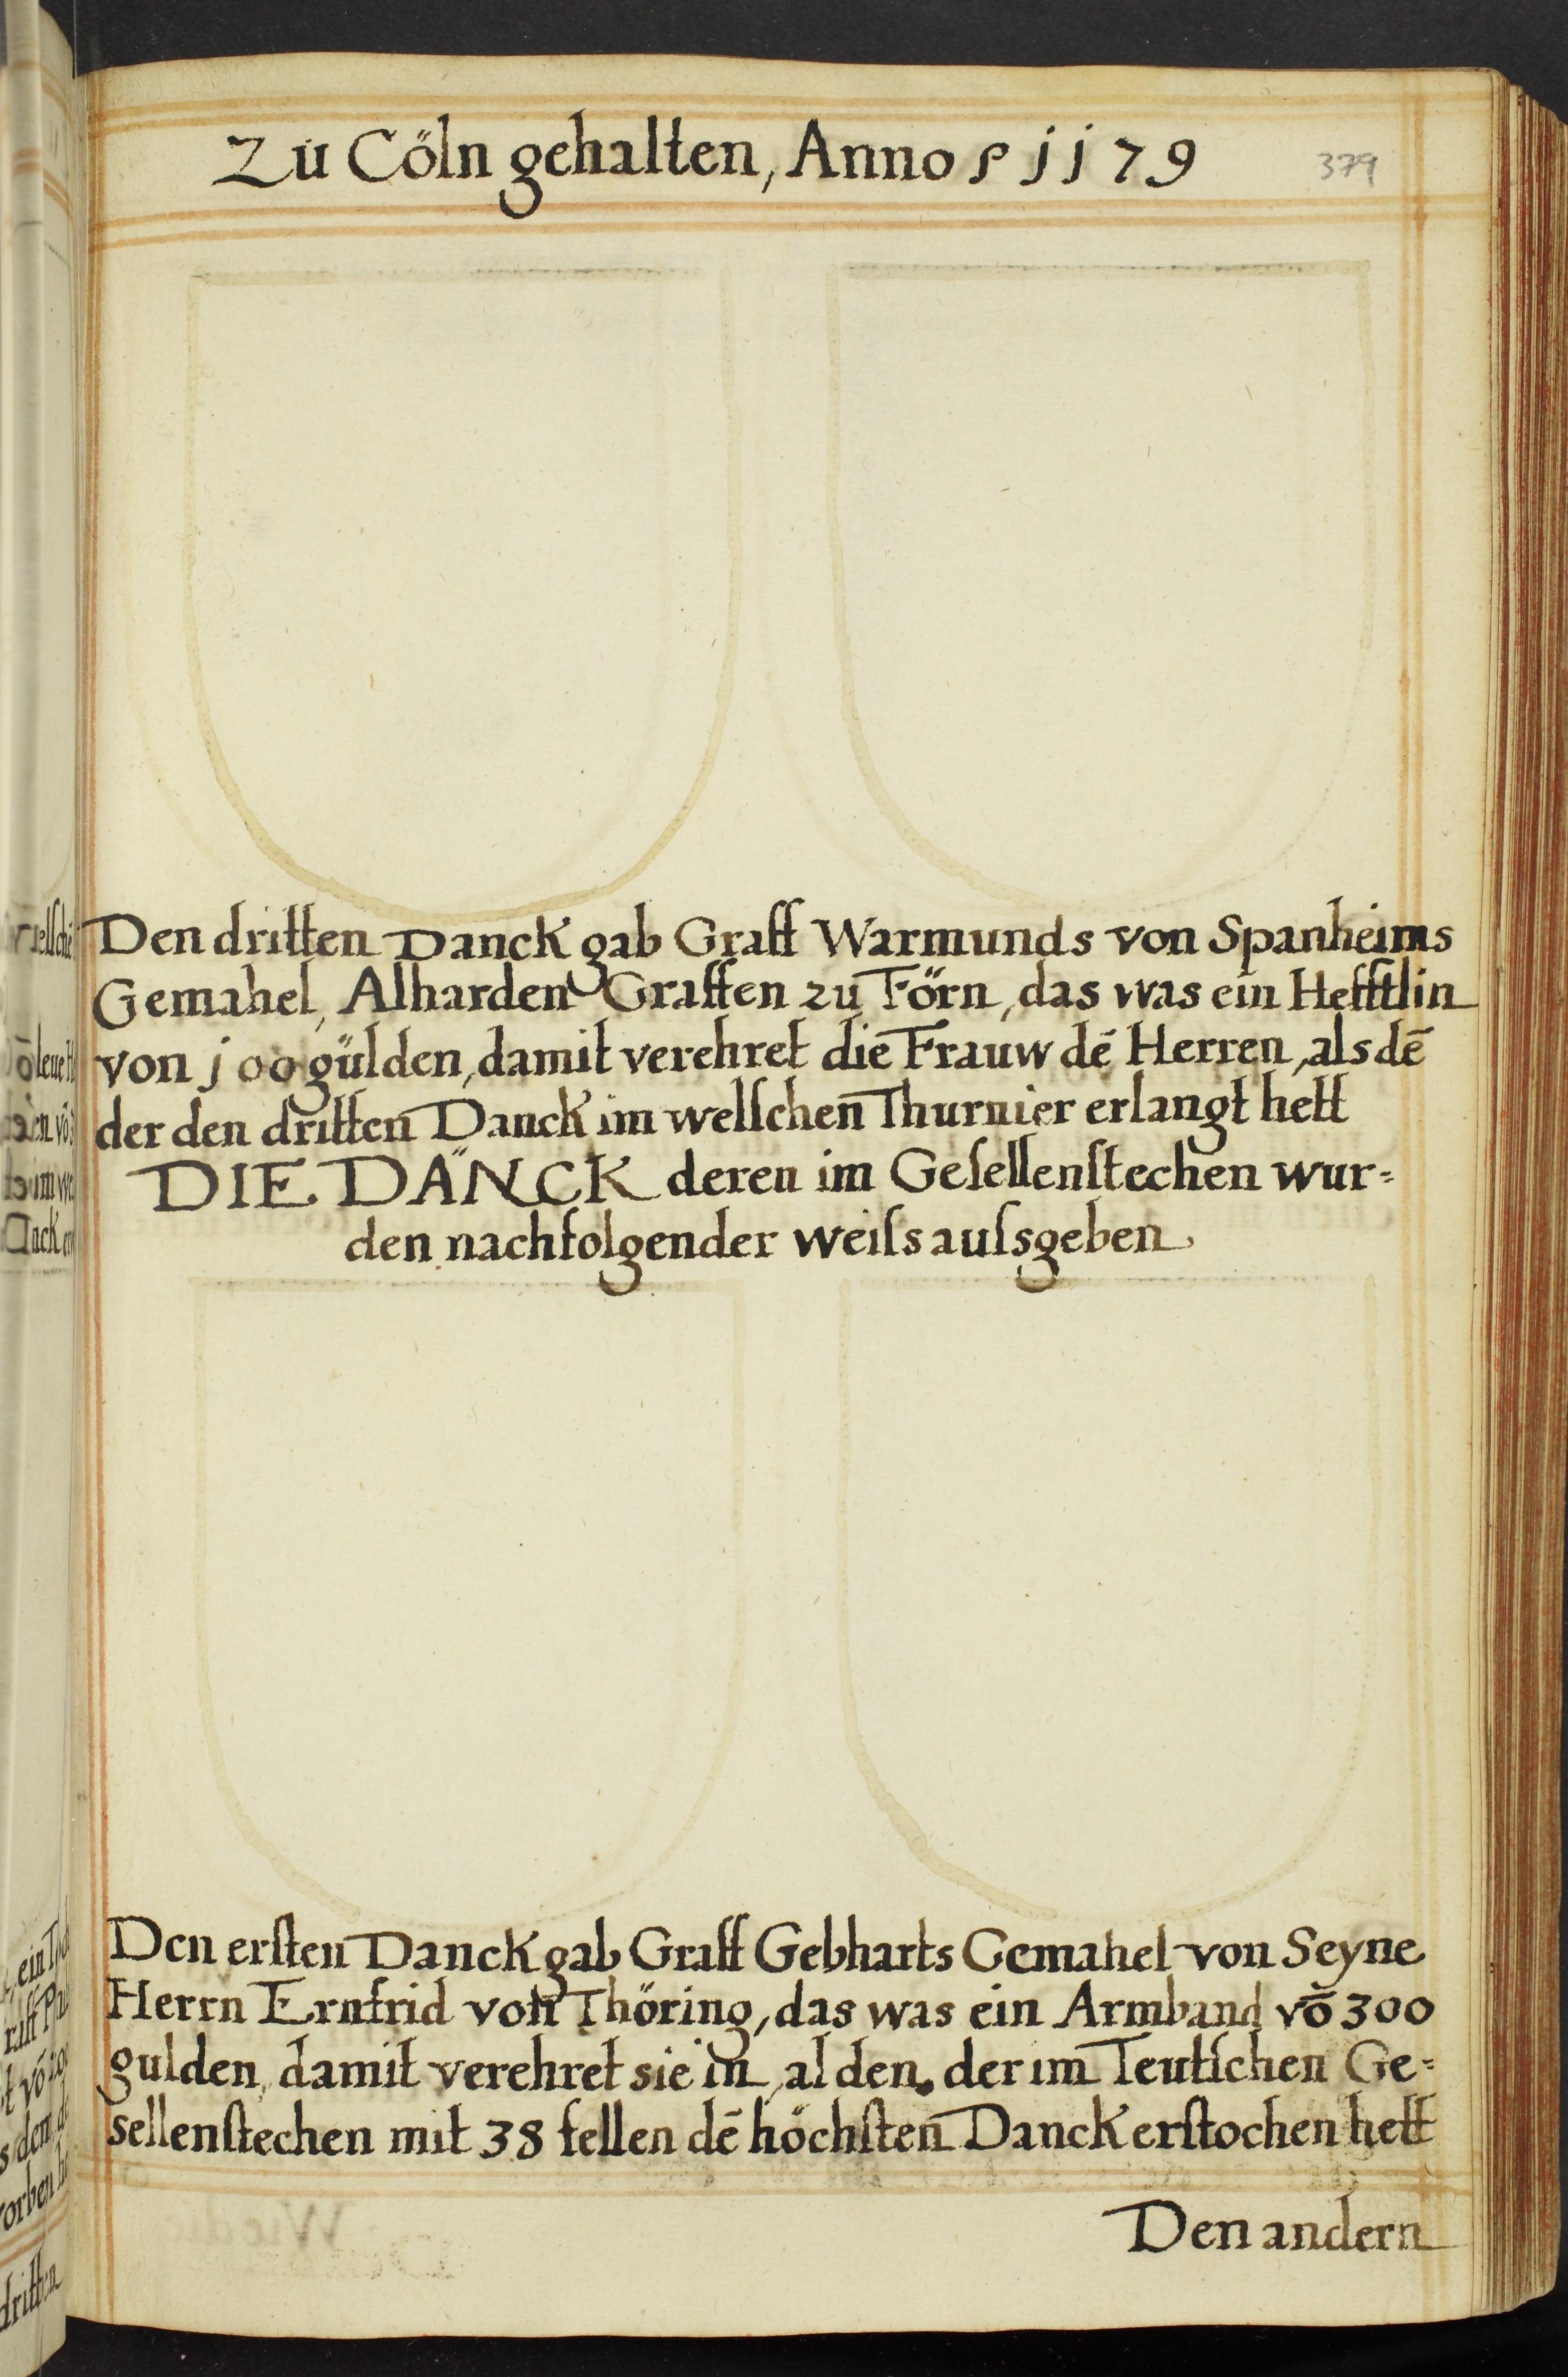 Zu Cöln gehalten, Anno 1179
379
Den dritten Danck gab Graff Warmunds von Spanheims
Gemahel, Alharden Graffen zu Törn, das was ein Hefftlin
von j00 gülden, damit verehret die Frauw dē Herren, als dē
der den dritten Danck im welſchen Thurnier erlangt hett
DIE DÄNCK deren im Geſellenſtechen wur=
den nachfolgender weiſs auſsgeben
Den erſten Danck gab Graff Gebharts Gemahel von Seyne
Herrn Ernfrid von Thöring, das was ein Armband vō 300
gulden, damit verehret sie in, al den. der im Teutſchen Ge=
sellenſtechen mit 38 fellen dē höchſten Danck erſtochen hett
Den andern